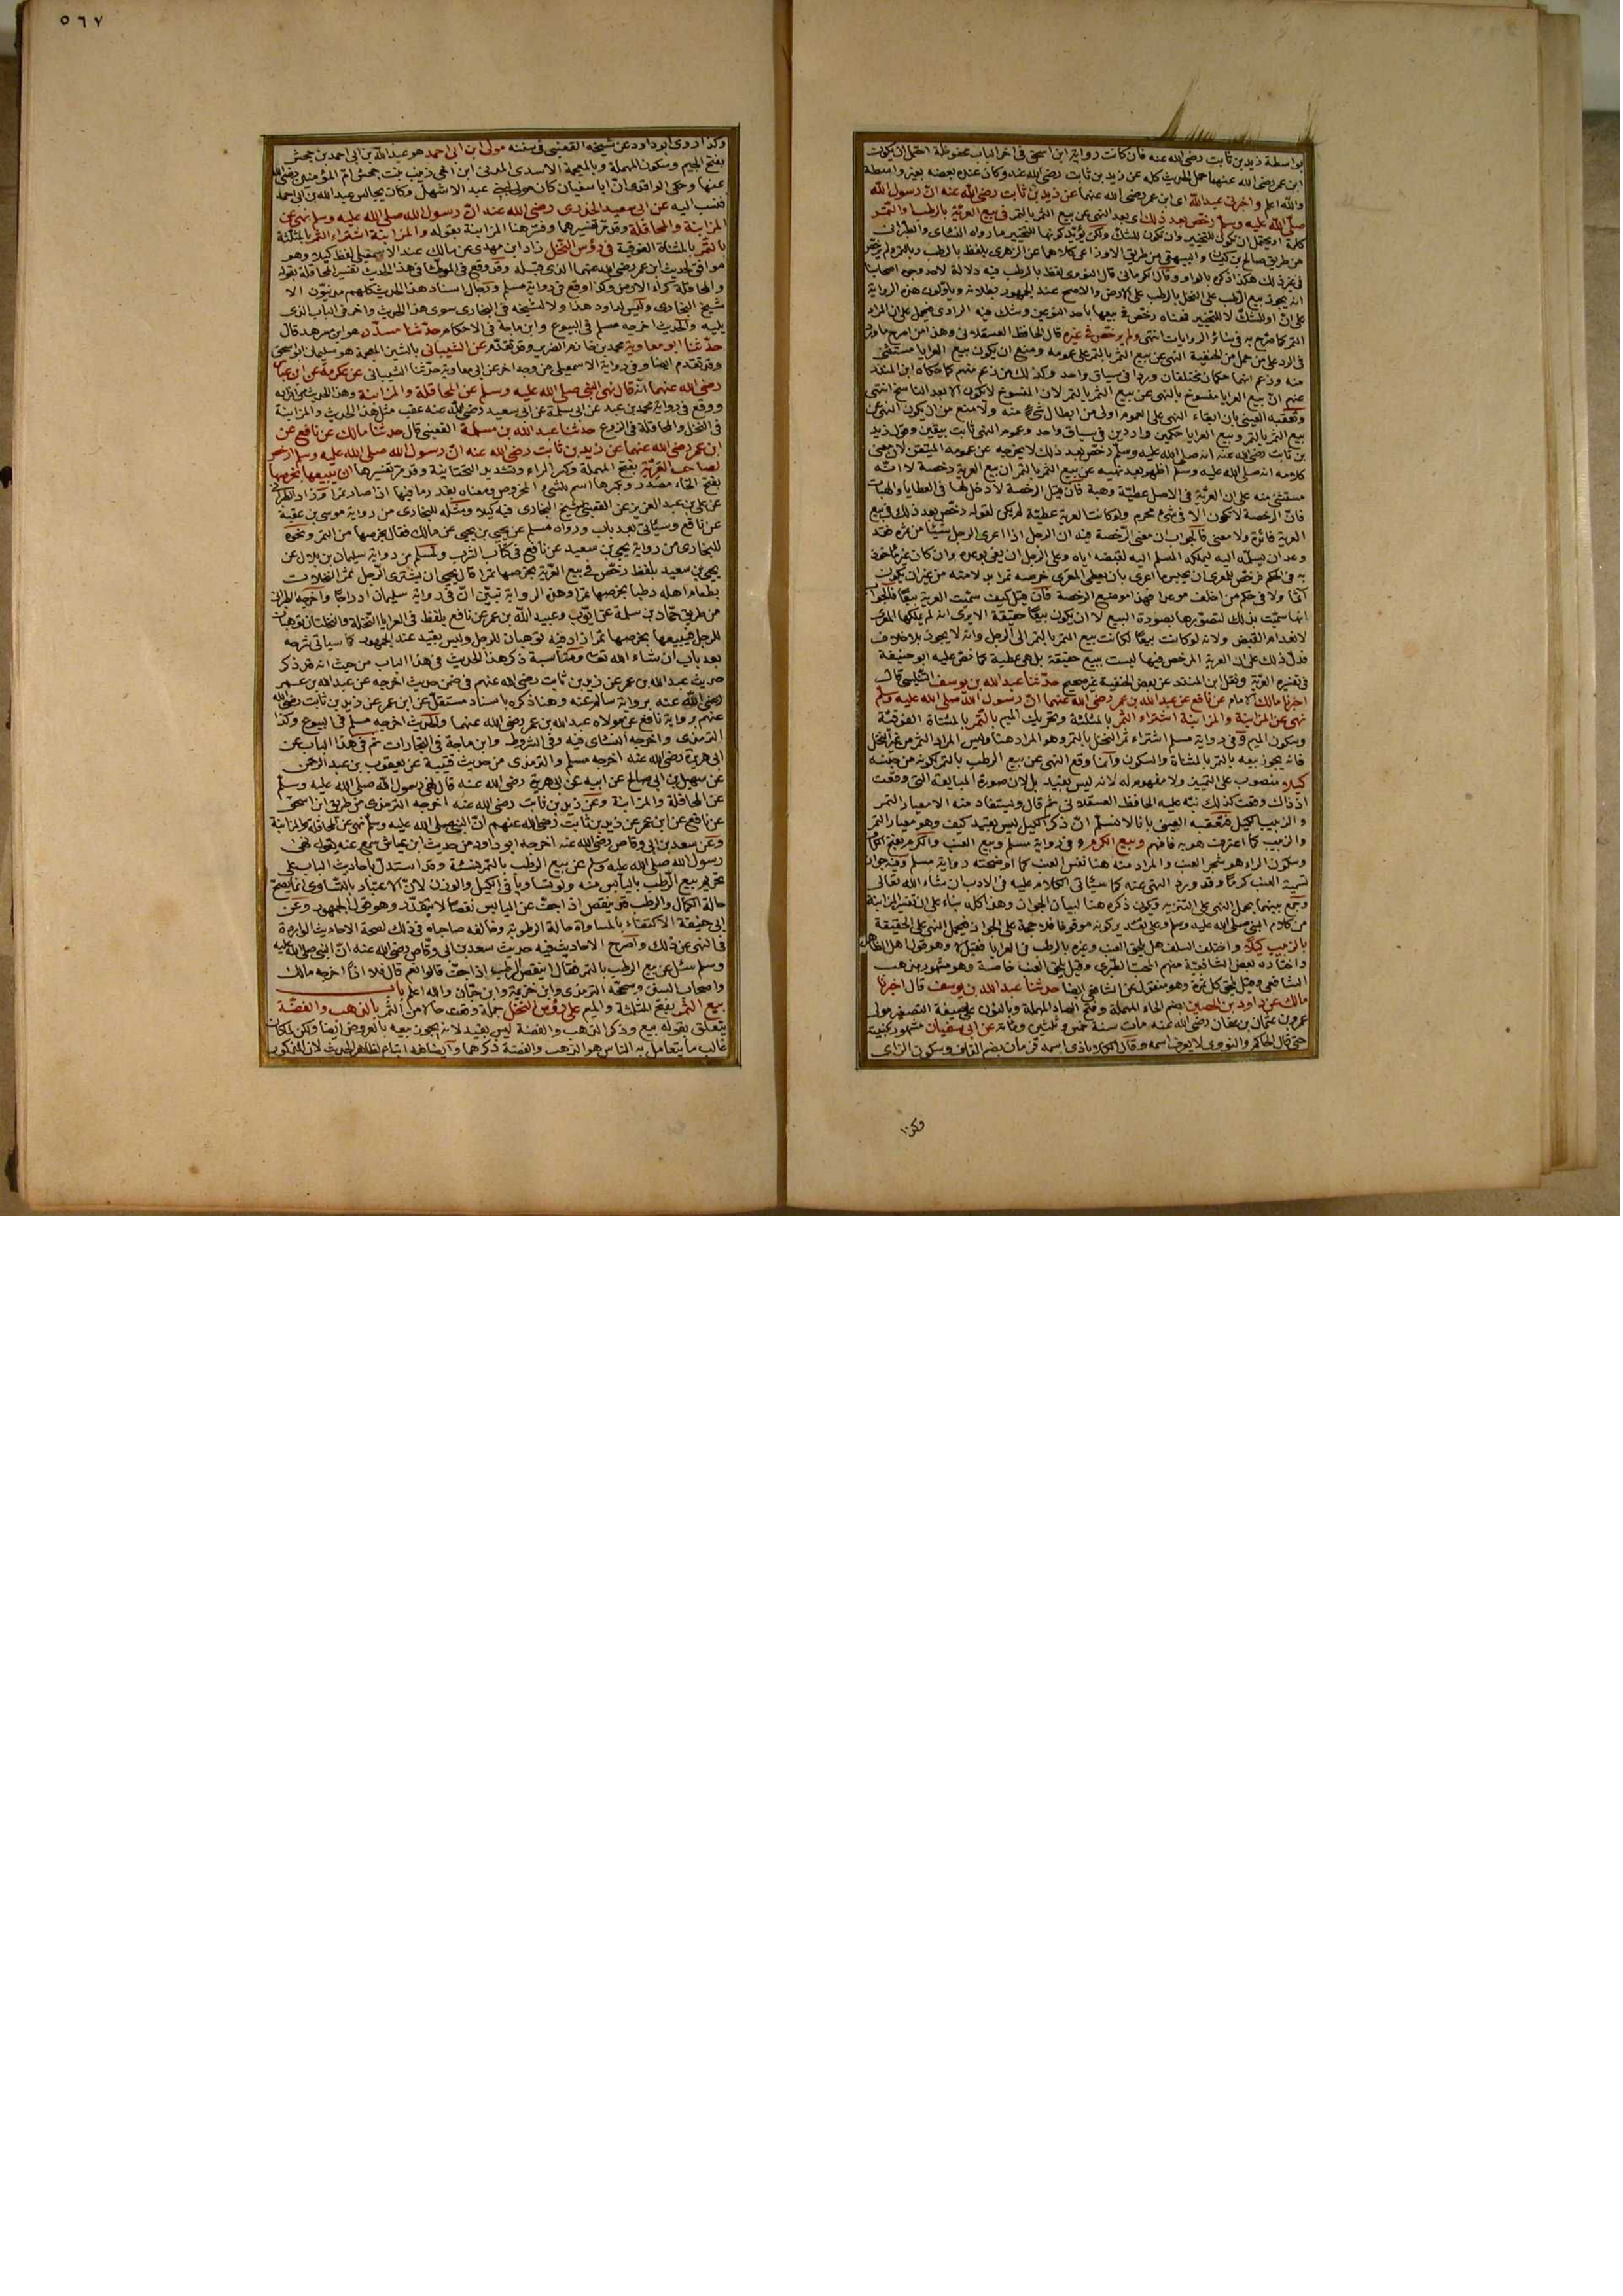 بواسطة زيد بن ثابت رضى الله عنه فان كانت رواية ابن اسحق فى اخر الباب محفوظة احتمل ان يكون
ابن عمر رضى الله عنهما حمل الحديث كله عن زيد بن ثابت رضى الله عنه وكان عنده بعضه بغير واسطة
والله اعلم واخبرنى عبدالله اى ابن عمر رضى الله عنهما عن زيد بن ثابت رضى الله عنه ان رسول الله
صلى الله عليه وسلم رخص بعد ذلك اى بعد النهى عن بيع الثمر بالتمر فى بيع العرية بالرطب او بالتمر
كلمة او يحتمل ان تكون للتخيير وان تكون للشك ولكن يؤيد كونها للتخيير ما رواه النسائى والطبرانى
من طريق صالح بن كيسان والبيهقى من طريق الاوزاعى كلاهما عن الزهرى بلفظ بالرطب وبالتمر ولم يرخص
فى غير ذلك هكذا ذكره بالواو وقال الكرمانى قال النووى لفظ بالرطب فيه دلالة لاحد وجهى اصحابنا
انه يجوز بيع الرطب على النخل بالرطب على الارض والاصح عند الجمهور بطلانه ويأولون هذه الرواية
على ان او للشك لا للتخيير فمعناه رخص فى بيعها باحد النوعين وشك فيه الراوى فيحمل على ان المراد
التمر كما صرح به فى سائر الروايات انتهى ولم يرخص فى غيره قال الحافظ العسقلانى وهذا من اصرح ما ورد
فى الرد على من حمل من الحنفية النهى عن بيع الثمر بالتمر على عمومه ومنع ان يكون بيع العرايا مستثنى
منه وزعم انهما حكمان مختلفان وردا فى سياق واحد وكذلك من زعم منهم كما حكاه ابن المنذر
عنهم ان بيع العرايا منسوخ بالنهى عن بيع الثمر بالتمر لان المنسوخ لا يكون الا بعد الناسخ انتهى
وتعقبه العينى بان ابقاء النهى على العموم اولى من ابطال شئ منه ولا منع من ان يكون النهى عن
بيع الثمر بالتمر وبيع العرايا حكمين واردين فى سياق واحد وعموم النهى ثابت بيقين وقول زيد
بن ثابت رضى الله عنه انه صلى الله عليه وسلم رخص بعد ذلك لا يخرجه عن عمومه المتيقن لان معنى
كلامه انه صلى الله عليه وسلم اظهر بعد نهيه عن بيع الثمر بالتمر ان بيع العرية رخصة لا انه
مستثنى منه على ان العرية فى الاصل عطية وهبة فان قيل الرخصة لا دخل لها فى العطايا والهبات
فان الرخصة لا تكون الا فى شئ محرم ولو كانت العرية عطية لم يكن لقوله رخص بعد ذلك فى بيع
العرية فائدة ولا معنى فالجواب ان معنى الرخصة فيه ان الرجل اذا اعرى الرجل شيئا من ثمره فقد
وعد ان يسلمه اليه ليملكه المسلم اليه لقبضه اياه وعلى الرجل ان يفى بوعده وان كان غير مأخوذ
به فى الحكم فرخص للمعرى ان يحبس ما اعرى بان يعطى المعرى خرصه تمرا بدلا منه من غير ان يكون
آثما ولا فى حكم من اخلف موعدا فهذا موضع الرخصة فان قيل كيف سميت العرية بيعا فالجواب
انما سميت بذلك لتصورها بصورة البيع لا ان يكون بيعا حقيقة الا يرى انه لم يملكها المعرى
لانعدام القبض ولانه لو كانت بيعا لكانت بيع الثمر بالتمر الى الرجل وانه لا يجوز بلا خلاف
فدل ذلك على ان العرية المرخص فيها ليست ببيع حقيقة بل هى عطية كما نص عليه ابو حنيفة
فى تفسير العرية ونقل ابن المنذر عن بعض الحنفية غير صحيح حدثنا عبدالله بن يوسف التنيسى قال
اخبرنا مالك الامام عن نافع عن عبدالله بن عمر رضى الله عنهما ان رسول الله صلى الله عليه وسلم
نهى عن المزابنة والمزابنة اشتراء الثمر بالمثلثة وتحريك الميم بالتمر بالمثناة الفوقية
وسكون الميم وفى رواية مسلم اشتراء ثمر النخل بالتمر وهو المراد هنا وليس المراد الثمر من غير النخل
فانه يجوز بيعه بالتمر بالمثناة والسكون وانما وقع النهى عن بيع الرطب بالتمر لكونه من جنسه
كيلا منصوب على التمييز ولا مفهوم له لانه ليس بقيد بل لان صورة المبايعة التى وقعت
اذ ذاك وقعت كذلك نبه عليه الحافظ العسقلانى ثم قال ويستفاد منه الا معيار التمر
والزبيب الكيل فتعقبه العينى بانا لا نسلم ان ذكر الكيل ليس بقيد كيف وهو معيار التمر
والزبيب كما اعترف هو به فافهم وبيع الكرم وفى رواية مسلم وبيع العنب والكرم بفتح الكاف
وسكون الراء هو شجر العنب والمراد منه هنا نفس العنب كما اوضحته رواية مسلم وفيه جواز
تسمية العنب كرما وقد ورد النهى عنه كما سيأتى الكلام عليه فى الادب ان شاء الله تعالى
وجمع بينهما بحمل النهى على التنزيه ويكون ذكره هنا لبيان الجواز وهذا كله بناء على ان تفسير المزابنة
من كلام النبى صلى الله عليه وسلم وعلى تقدير كونه موقوفا فلا حجة على الجواز فيحمل النهى على الحقيقة
بالزبيب كيلا واختلف السلف هل يلحق العنب وغيره بالرطب فى العرايا فقيل لا وهو قول اهل الظاهر
واختاره بعض الشافعية منهم المحب الطبرى وقيل يلحق العنب خاصة وهو مشهور مذهب
الشافعى وقيل يلحق كل ثمرة وهو منقول عن الشافعى ايضا حدثنا عبد الله بن يوسف قال اخبرنا
مالك عن داود بن الحصين بضم الحاء المهملة وفتح الصاد المهملة وبالنون على صيغة التصغير مولى
عمرو بن عثمان بن عفان رضى الله عنه مات سنة خمس وثلثين ومائة عن ابى سفيان مشهور بكنيته
حتى قال الحاكم والنووى لا يعرف اسمه وقال الكلاباذى اسمه قزمان بضم القاف وسكون الزاى
وكذا
٥٦٧
وكذا روى ابو داود عن شيخه القعنبى فى سننه مولى ابن ابى احمد هو عبدالله بن ابى احمد بن جحش
بفتح الجيم وسكون المهملة وبالمعجمة الاسدى المدنى ابن اخى زينب بنت جحش ام المؤمنين رضى الله
عنها وحكى الواقدى ان ابا سفيان كان مولى لبنى عبد الاشهل وكان يجالس عبدالله بن ابى احمد
فنسب اليه عن ابى سعيد الخدرى رضى الله عنه ان رسول الله صلى الله عليه وسلم نهى عن
المزابنة والمحاقلة وقد مر تفسيرهما وفسر هنا المزابنة بقوله والمزابنة اشتراء الثمر بالمثلثة
بالتمر بالمثناة الفوقية فى رؤس النخل زاد ابن مهدى عن مالك عند الاسمعيلى لفظ كيلا وهو
موافق لحديث ابن عمر رضى الله عنهما الذى قبله وقد وقع فى الموطأ فى هذا الحديث تفسير المحاقلة بقوله
والمحاقلة كراء الارض وكذا وقع فى رواية مسلم ورجال اسناد هذا الحديث كلهم مدنيون الا
شيخ البخارى وليس لداود هذا ولا لشيخه فى البخارى سوى هذا الحديث واخر فى الباب الذى
يليه والحديث اخرجه مسلم فى البيوع وابن ماجة فى الاحكام حدثنا مسدد هو ابن مسرهد قال
حدثنا ابو معاوية محمد بن خازم الضرير وقد تقدم عن الشيبانى بالشين المعجمة هو سليمان ابو اسحق
وقد تقدم ايضا وفى رواية الاسمعيلى من وجه اخر عن ابى معاوية حدثنا الشيبانى عن عكرمة عن ابن عباس
رضى الله عنهما انه قال نهى النبى صلى الله عليه وسلم عن المحاقلة والمزابنة وهذا الحديث من افراده
ووقع فى رواية محمد بن عبد عن ابى سلمة عن ابى سعيد رضى الله عنه عقب مثل هذا الحديث والمزابنة
فى النخل والمحاقلة فى الزرع حدثنا عبد الله بن مسلمة القعنبى قال حدثنا مالك عن نافع عن
ابن عمر رضى الله عنهما عن زيد بن ثابت رضى الله عنه ان رسول الله صلى الله عليه وسلم ارخص
لصاحب العرية بفتح المهملة وكسر الراء وتشديد التحتانية وقد مر تفسيرها ان يبيعها بخرصها
بفتح الخاء مصدر وبكسرها اسم للشئ المخروص ومعناه بقدر ما فيها اذا صار تمرا وزاد الطبرانى
عن على بن عبد العزيز عن القعنبى شيخ البخارى فيه كيلا ومثله للبخارى من رواية موسى بن عقبة
عن نافع وسيأتى بعد باب ورواه مسلم عن يحيى بن يحيى عن مالك فقال بخرصها من التمر ونحوه
للبخارى من رواية يحيى بن سعيد عن نافع فى كتاب الشرب ولمسلم من رواية سليمان بن بلال عن
يحيى بن سعيد بلفظ رخص فى بيع العرية بخرصها تمرا قال يحيى ان يشترى الرجل ثمر النخلات
بطعام اهله رطبا بخرصها تمرا وهذه الرواية تبين ان فى رواية سليمان ادراجا واخرجه الطبرانى
من طريق حماد بن سلمة عن ايوب وعبيد الله بن عمر عن نافع بلفظ فى العرايا النخلة والنخلتان توهبان
للرجل فيبيعها بخرصها تمرا زاد فيه توهبان للرجل وليس بقيد عند الجمهور كما سيأتى شرحه
بعد باب ان شاء الله تعالى ومناسبة ذكر هذا الحديث فى هذا الباب من حيث انه قد ذكر
حديث عبد الله بن عمر عن زيد بن ثابت رضى الله عنهم فى ضمن حديث اخرجه عن عبد الله بن عمر
رضى الله عنه برواية سالم عنه وهنا ذكره باسناد مستقل عن ابن عمر عن زيد بن ثابت رضى الله
عنهم برواية نافع عن مولاه عبد الله بن عمر رضى الله عنهما والحديث اخرجه مسلم فى البيوع وكذا
الترمذى واخرجه النسائى فيه وفى الشروط وابن ماجة فى التجارات ثم فى هذا الباب عن
ابى هريرة رضى الله عنه اخرجه مسلم والترمذى من حديث قتيبة عن يعقوب بن عبد الرحمن
عن سهيل بن ابى صالح عن ابيه عن ابى هريرة رضى الله عنه قال نهى رسول الله صلى الله عليه وسلم
عن المحاقلة والمزابنة وعن زيد بن ثابت رضى الله عنه اخرجه الترمذى من طريق ابن اسحق
عن نافع عن ابن عمر عن زيد بن ثابت رضى الله عنهم ان النبى صلى الله عليه وسلم نهى عن المحاقلة والمزابنة
وعن سعد بن ابى وقاص رضى الله عنه اخرجه ابو داود من حديث ابن عياش سمع عنه يقول نهى
رسول الله صلى الله عليه وسلم عن بيع الرطب بالتمر نسيئة وقد استدل باحاديث الباب على
تحريم بيع الرطب باليابس منه ولو تساويا فى الكيل والوزن لان الاعتبار بالتساوى انما يصح
حالة الكمال والرطب قد ينقص اذا جف عن اليابس نقصا لا يتقدر وهو قول الجمهور وعن
ابى حنيفة الاكتفاء بالمساواة حالة الرطوبة وخالفه صاحباه فى ذلك لصحة الاحاديث الواردة
فى النهى عن ذلك واصرح الاحاديث فيه حديث سعد بن ابى وقاص رضى الله عنه ان النبى صلى الله عليه
وسلم سئل عن بيع الرطب بالتمر فقال اينقص الرطب اذا جف قالوا نعم قال فلا اذا اخرجه مالك
واصحاب السنن وصححه الترمذى وابن خزيمة وابن حبان والله اعلم باب
بيع الثمر بفتح المثلثة والميم على رؤس النخل جملة وقعت حالا من الثمر بالذهب والفضة
يتعلق بقوله بيع وذكر الذهب والفضة ليس بقيد لانه يجوز بيعه بالعروض ايضا ولكن لما كان
غالب ما يتعامل به الناس هو الذهب والفضة ذكرهما وايضا فيه اتباع لظاهر الحديث لان المذكور